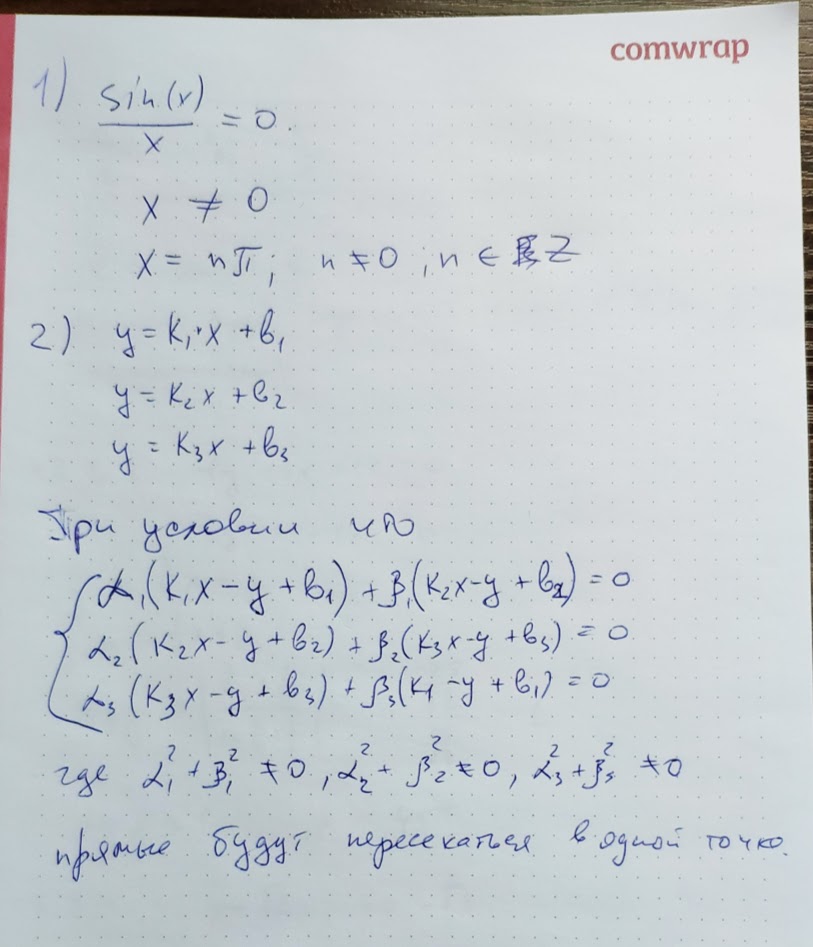 comwrap
1) sin(x)/x = 0.
x ≠ 0
x = nπ; n ≠ 0, n ∈ Z
2) y = k₁·x + b₁
y = k₂x + b₂
y = k₃x + b₃
При условии что
α₁(k₁x - y + b₁) + β₁(k₂x - y + b₂) = 0
α₂(k₂x - y + b₂) + β₂(k₃x - y + b₃) = 0
α₃(k₃x - y + b₃) + β₃(k₁ - y + b₁) = 0
где α₁² + β₁² ≠ 0, α₂² + β₂² ≠ 0, α₃² + β₃² ≠ 0
прямые будут пересекаться в одной точке.